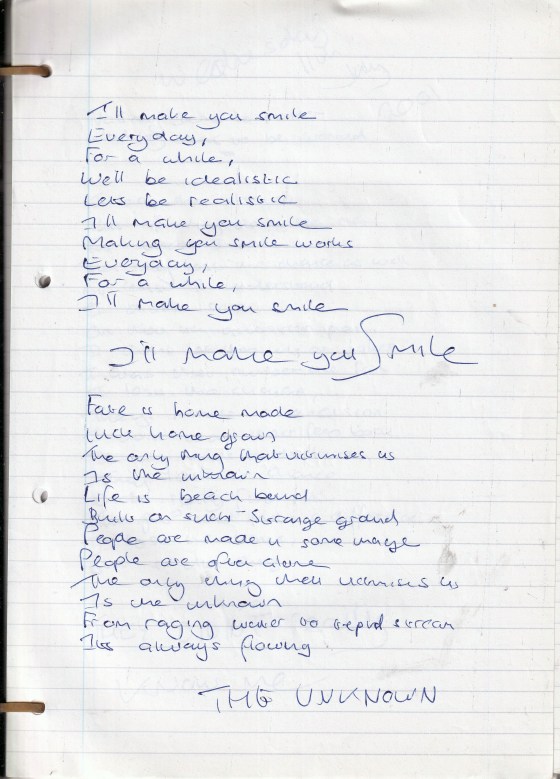 I'll make you smile
Everyday,
For a while,
We'll be idealistic
Lets be realistic
I'll make you smile
Making you smile works
Everyday,
For a while,
I'll make you smile
I'll make you Smile
Fate is home made
luck home grown
The only thing that victimises us
Is the unknown
Life is beach bound
Built on such strange ground
People are made in some image
People are often alone
The only thing that victimises us
Is the unknown
From raging water to tepid stream
Its always flowing
THE UNKNOWN